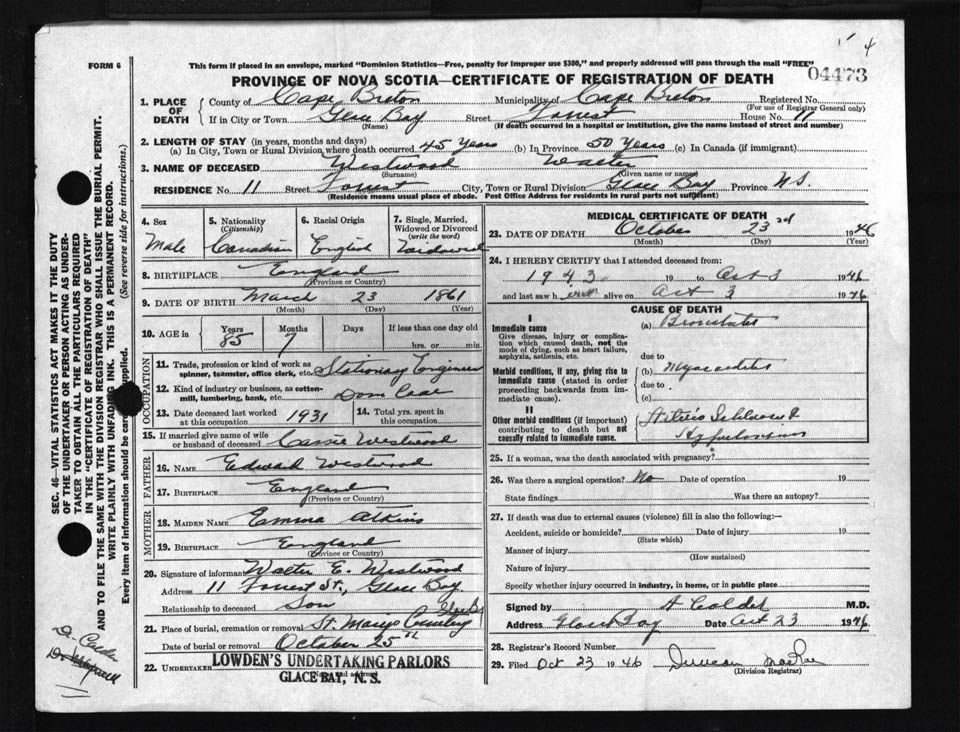 FORM 6
This form if placed in an envelope, marked "Dominion Statistics—Free, penalty for improper use $300," and properly addressed will pass through the mail "FREE"
04473
PROVINCE OF NOVA SCOTIA—CERTIFICATE OF REGISTRATION OF DEATH
1. PLACE OF DEATH County of Cape Breton Municipality of Cape Breton Registered No.
(For use of Registrar General only)
If in City or Town Glace Bay Street Forrest House No. 11
(Name) (If death occurred in a hospital or institution, give the name instead of street and number)
2. LENGTH OF STAY (in years, months and days)
(a) In City, Town or Rural Division where death occurred 45 years (b) In Province 50 Years (c) In Canada (if immigrant)
3. NAME OF DECEASED Westwood Walter
(Surname) (Given name or names)
RESIDENCE No. 11 Street Forrest City, Town or Rural Division Glace Bay Province N.S.
(Residence means usual place of abode. Post Office Address for residents in rural parts not sufficient)
4. Sex Male
5. Nationality (Citizenship) Canadian
6. Racial Origin English
7. Single, Married, Widowed or Divorced (write the word) Widowed
8. BIRTHPLACE England
(Province or Country)
9. DATE OF BIRTH March 23 1861
(Month) (Day) (Year)
10. AGE in Years 85 Months 7 Days If less than one day old
hrs. or min.
OCCUPATION
11. Trade, profession or kind of work as spinner, teamster, office clerk, etc. Stationary Engineer
12. Kind of industry or business, as cotton-mill, lumbering, bank, etc. Dom Coal
13. Date deceased last worked at this occupation 1931
14. Total yrs. spent in this occupation
15. If married give name of wife or husband of deceased Cassie Westwood
FATHER
16. NAME Edward Westwood
17. BIRTHPLACE England
(Province or Country)
MOTHER
18. MAIDEN NAME Emma Atkins
19. BIRTHPLACE England
(Province or Country)
20. Signature of informant Walter E. Westwood
Address 11 Forrest St., Glace Bay
Relationship to deceased Son
21. Place of burial, cremation or removal St. Mary's Cemetery Glace B
Date of burial or removal October 25th
22. UNDERTAKER LOWDEN'S UNDERTAKING PARLORS
GLACE BAY, N. S.
(Name and address)
MEDICAL CERTIFICATE OF DEATH
23. DATE OF DEATH October 23rd 1946
(Month) (Day) (Year)
24. I HEREBY CERTIFY that I attended deceased from:
1943 19 to Oct 3 1946
and last saw h alive on Oct 3 1946
CAUSE OF DEATH
I
Immediate cause
Give disease, injury or complication which caused death, not the mode of dying, such as heart failure, asphyxia, asthenia, etc.
(a)
due to
Morbid conditions, if any, giving rise to immediate cause (stated in order proceeding backwards from immediate cause).
(b) Myocarditis
due to
(c)
II
Other morbid conditions (if important) contributing to death but not causally related to immediate cause.
Hypertension
25. If a woman, was the death associated with pregnancy?
26. Was there a surgical operation? No Date of operation 19
State findings Was there an autopsy?
27. If death was due to external causes (violence) fill in also the following:—
Accident, suicide or homicide? Date of injury 19
(State which)
Manner of injury
(How sustained)
Nature of injury
Specify whether injury occurred in industry, in home, or in public place
Signed by M.D.
Address Glace Bay Date Oct 23 1946
28. Registrar's Record Number
29. Filed Oct 23 1946 Duncan MacRae
(Division Registrar)
SEC. 46—VITAL STATISTICS ACT MAKES IT THE DUTY
OF THE UNDERTAKER OR PERSON ACTING AS UNDER-
TAKER TO OBTAIN ALL THE PARTICULARS REQUIRED
IN THE "CERTIFICATE OF REGISTRATION OF DEATH"
AND TO FILE THE SAME WITH THE DIVISION REGISTRAR WHO SHALL ISSUE THE BURIAL PERMIT.
WRITE PLAINLY WITH UNFADING INK. THIS IS A PERMANENT RECORD.
Every item of information should be carefully supplied. (See reverse side for instructions.)